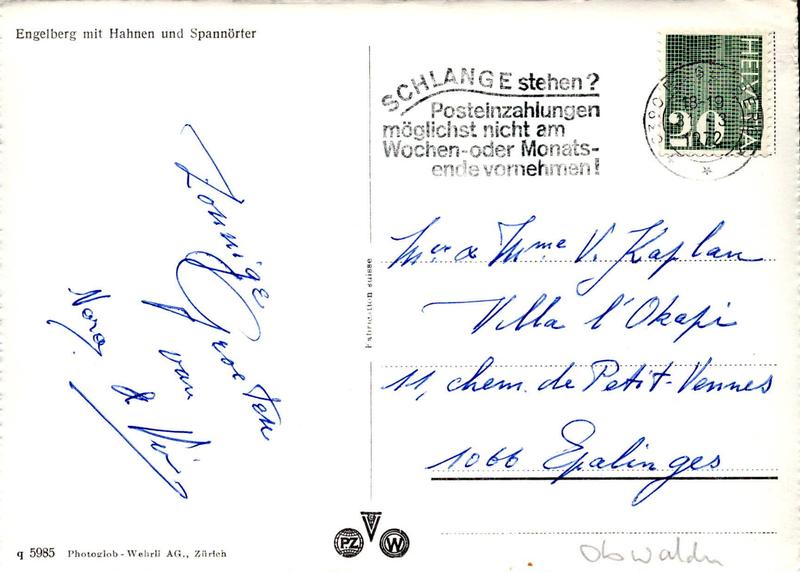 Engelberg mit Hahnen und Spannörter
SCHLANGE stehen?
Posteinzahlungen
möglichst nicht am
Wochen- oder Monats-
ende vornehmen!
HELVETIA
20
6390
18-19
1972
Zonnige
Groeten
van
Nora & Vic
Mr & Mme V. Kaplan
Villa l'Okapi
11, chem. de Petit-Vennes
1066 Epalinges
Fabrication suisse
q 5985 Photoglob-Wehrli AG., Zürich
PZ W
Obwalden